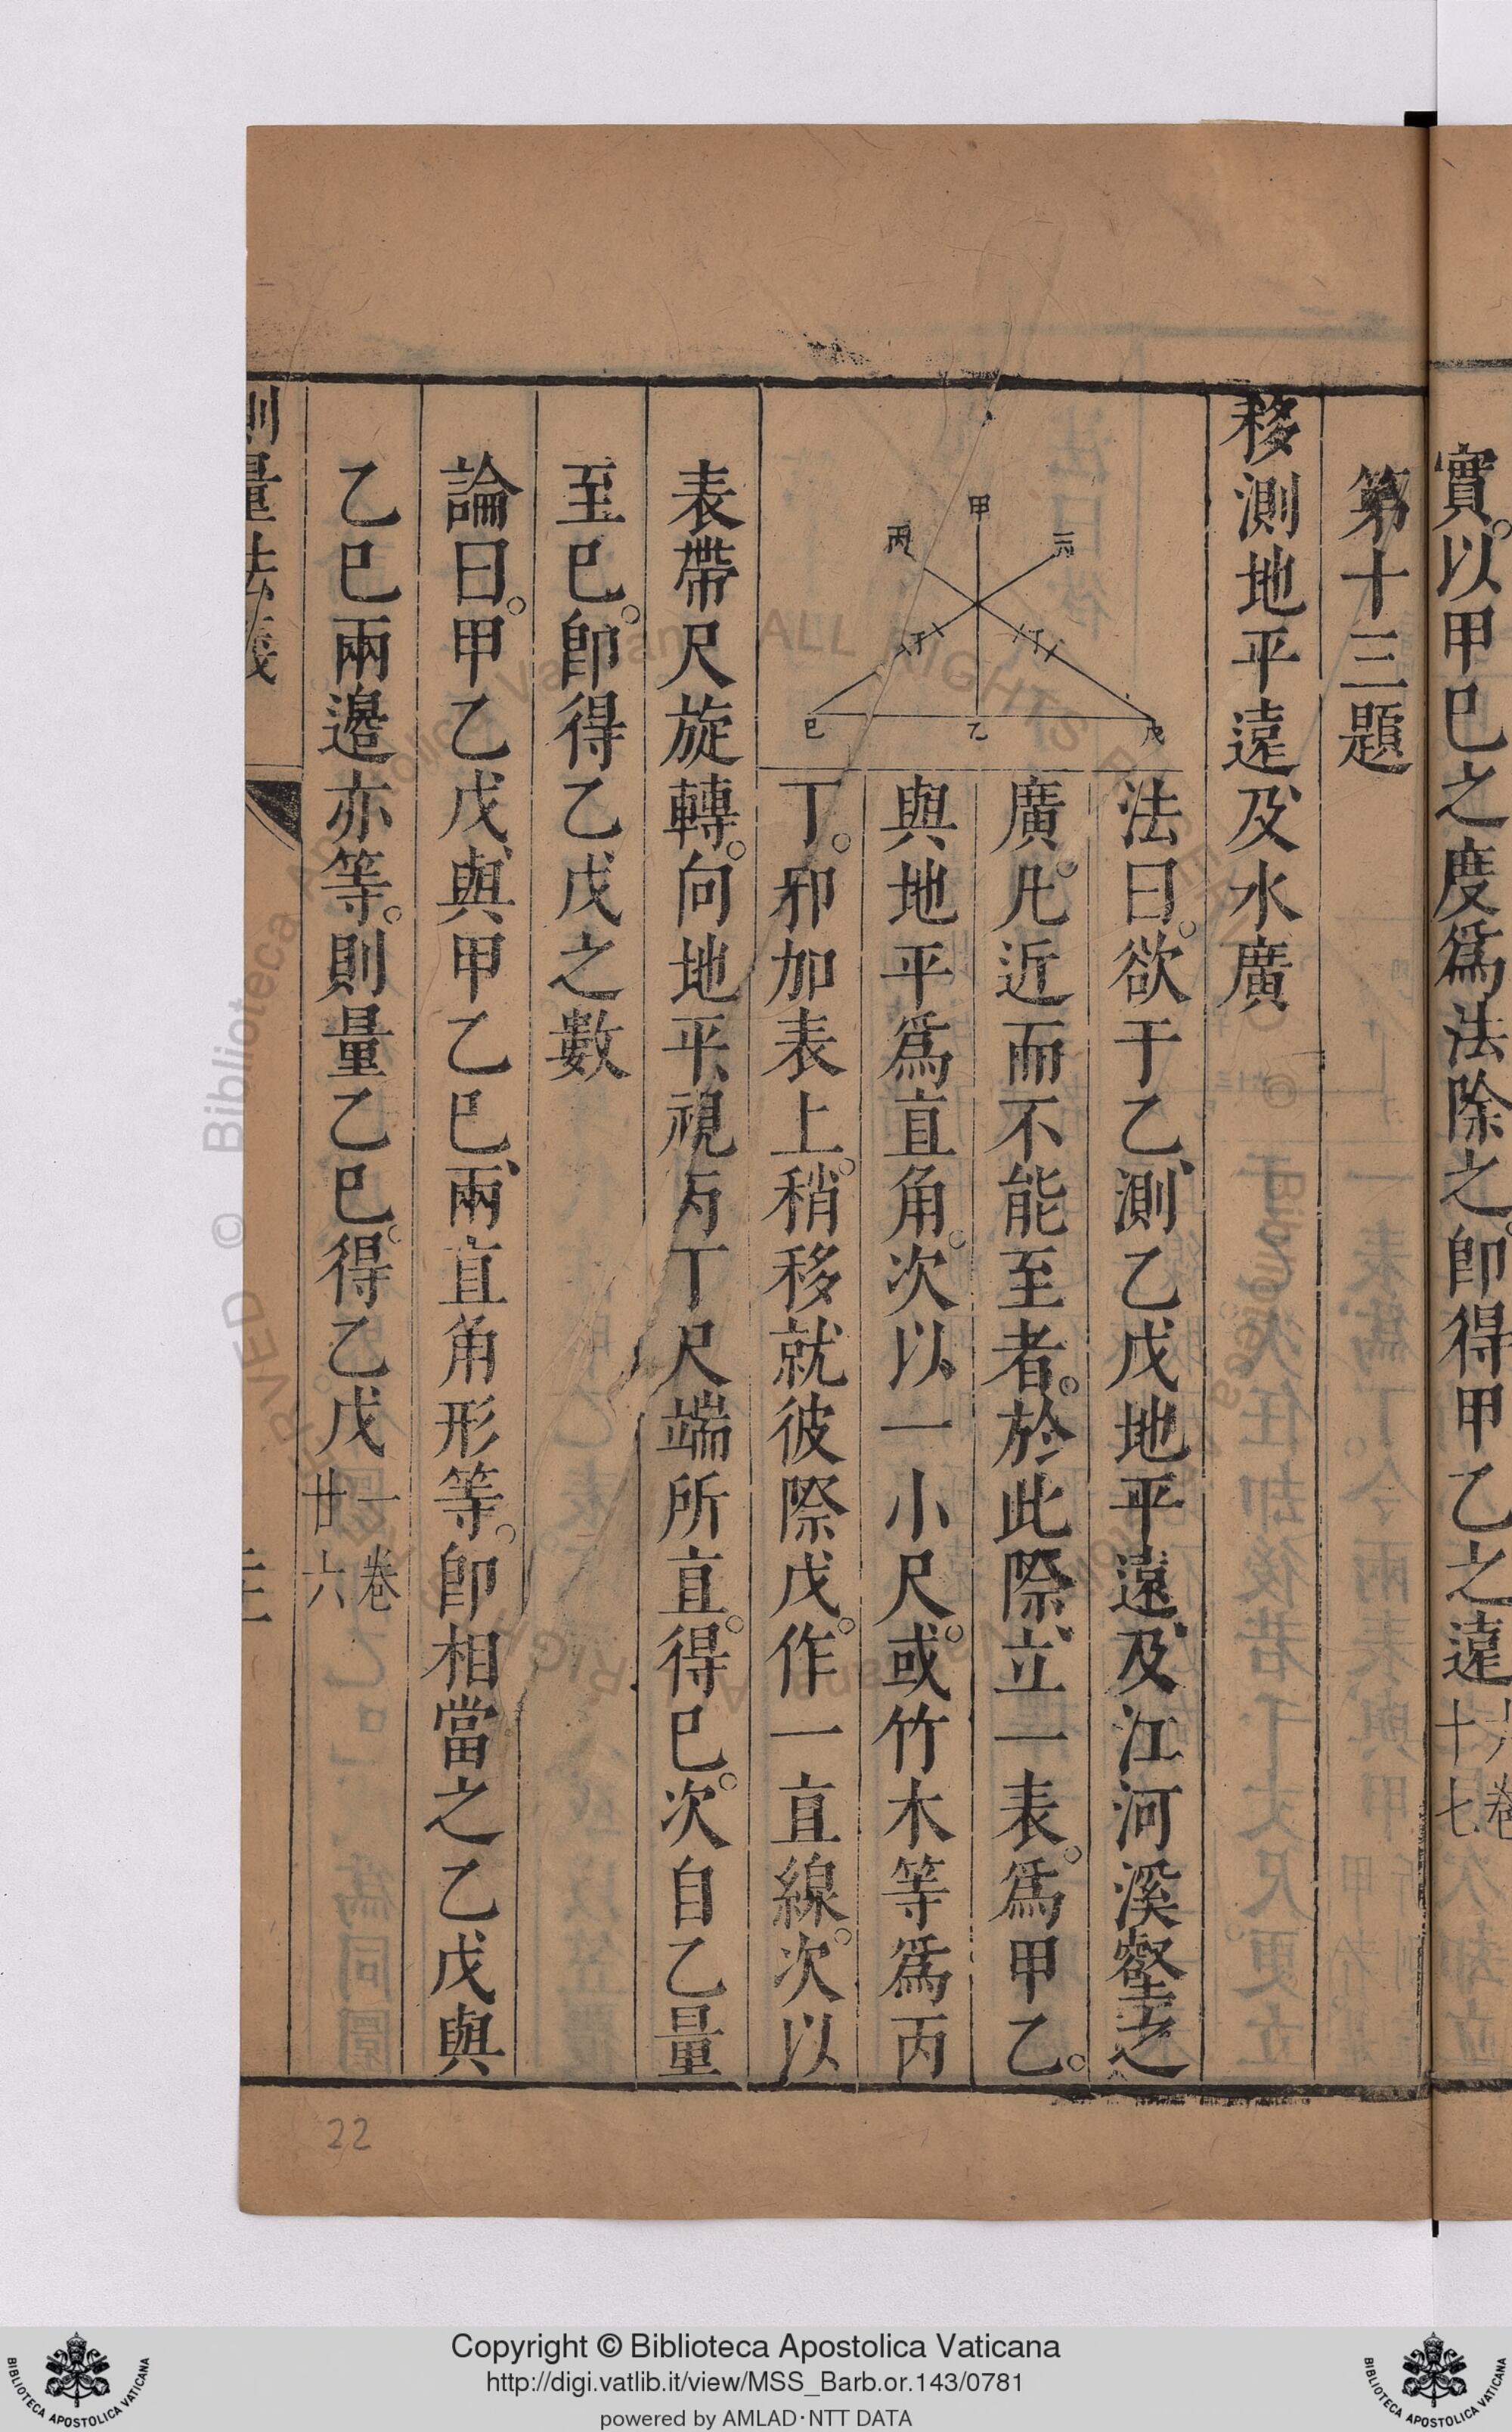 實。以甲巳之度爲法除之。卽得甲乙之遠六卷
十七
第十三題
移測地平遠、及水廣
法曰。欲于乙、測乙戊地平遠、及江河溪壑之
廣。凡近而不能至者。於此際、立一表。爲甲乙。
與地平爲直角。次以一小尺。或竹木等爲丙
丁。邪加表上。稍移就彼際戊。作一直線。次以
表帶尺旋轉。向地平、視丙丁尺端所直。得巳。次自乙量
至巳。卽得乙戊之數
論曰。甲乙戊、與甲乙巳、兩直角形等。卽相當之乙戊與
乙巳兩邊亦等。則量乙巳。得乙戊一卷
廿六
甲
丙
丙
丁
丁
巳
乙
戊
測量法義
22
Copyright © Biblioteca Apostolica Vaticana
http://digi.vatlib.it/view/MSS_Barb.or.143/0781
powered by AMLAD·NTT DATA
BIBLIOTECA APOSTOLICA VATICANA
BIBLIOTECA APOSTOLICA VATICANA